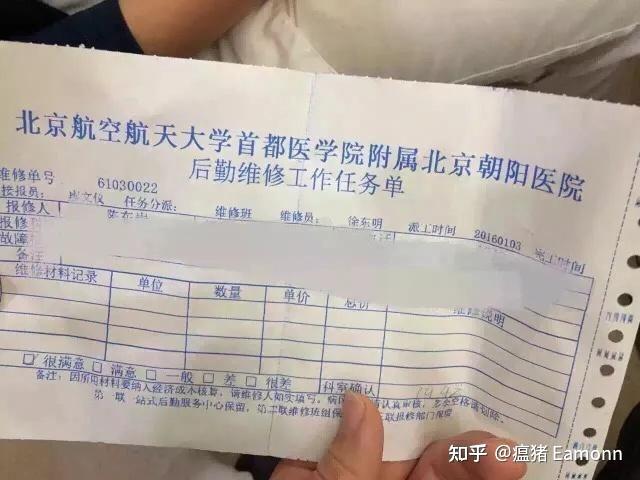 北京航空航天大学首都医学院附属北京朝阳医院
后勤维修工作任务单
维修单号 61030022
接报员: 文仪 任务分派: 维修班 维修员: 徐东明 派工时间 20160103 完工时间
报修人 陈东
故障
备注
维修材料记录 单位 数量 单价 总价 维修说明
☑ 很满意 □ 满意 □ 一般 □ 差 □ 很差 科室确认
备注: 因所用材料要纳入经济成本核算, 请维修人如实填写, 请认真审核, 多余空格请划除。
第一联 站式后勤服务中心保留, 第二联维修班组保 三联报修部门保留
知乎 @瘟猪 Eamonn